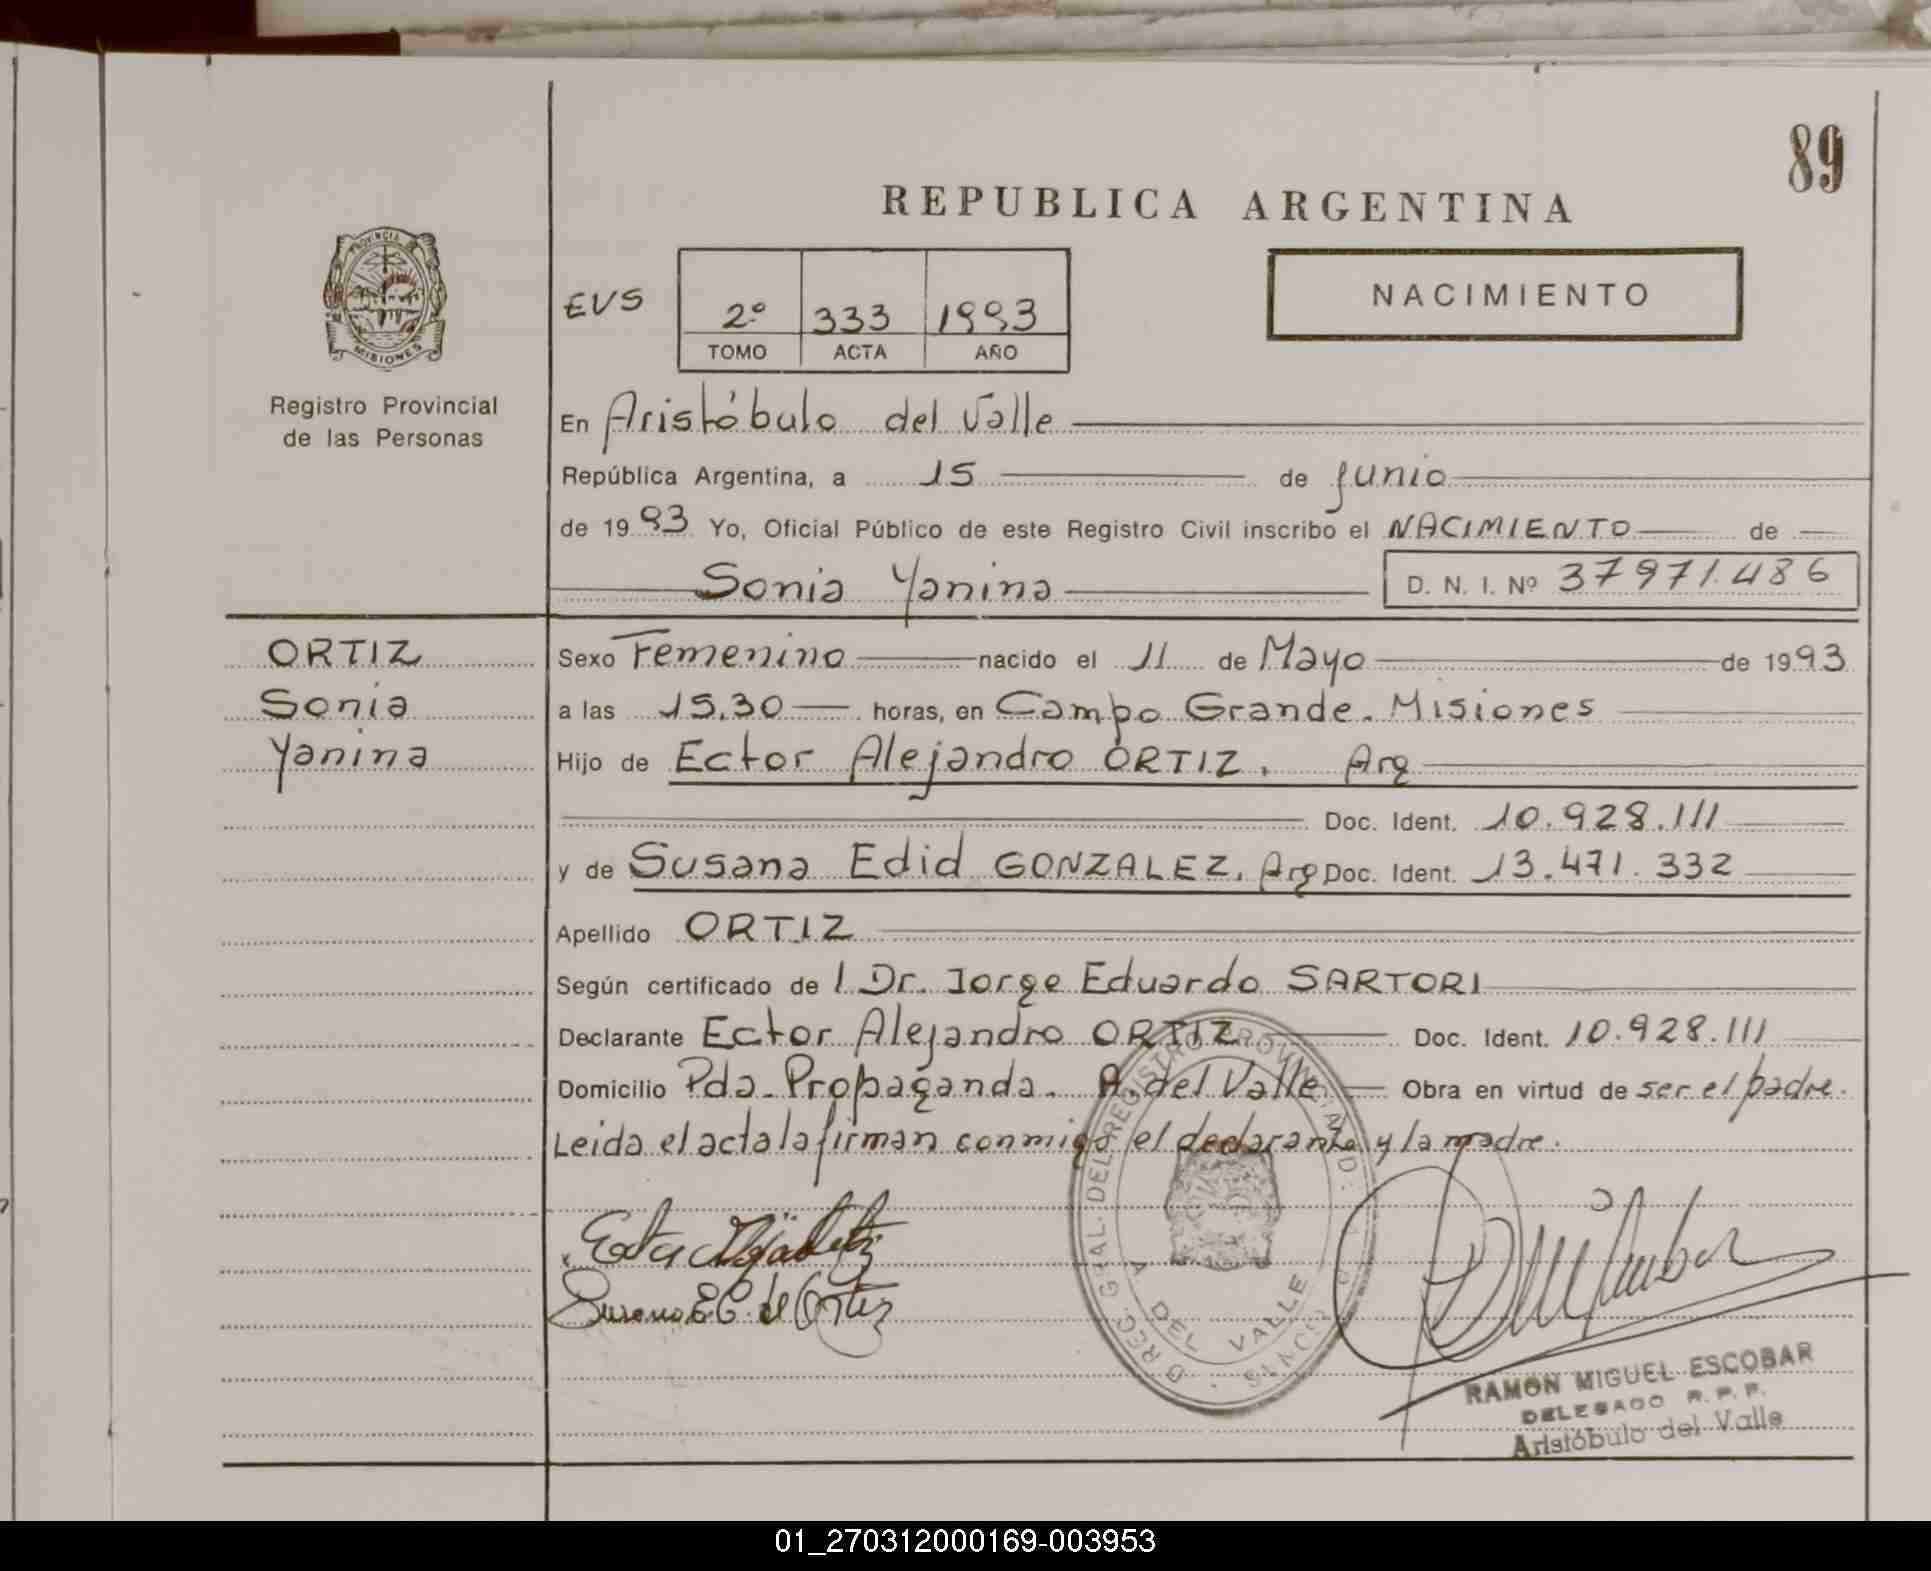 89
REPUBLICA ARGENTINA
PROVINCIA DE
MISIONES
Registro Provincial
de las Personas
EVS
2º 333 1993
TOMO ACTA AÑO
NACIMIENTO
En Aristóbulo del Valle
República Argentina, a 15 de Junio
de 1993 Yo, Oficial Público de este Registro Civil inscribo el NACIMIENTO de
Sonia Yanina D. N. I. Nº 37971.486
ORTIZ
Sonia
Yanina
Sexo Femenino nacido el 11 de Mayo de 1993
a las 15.30 horas, en Campo Grande. Misiones
Hijo de Ector Alejandro ORTIZ. Arg
Doc. Ident. 10.928.111
y de Susana Edid GONZALEZ. Arg Doc. Ident. 13.471.332
Apellido ORTIZ
Según certificado de l Dr. Jorge Eduardo SARTORI
Declarante Ector Alejandro ORTIZ Doc. Ident. 10.928.111
Domicilio Pda. Propaganda. A. del Valle Obra en virtud de ser el padre.
Leida el acta la firman conmigo el declarante y la madre.
Susana E G. de Ortiz
A DEL VALLE
RAMON MIGUEL ESCOBAR
DELEGADO R. P. P.
Aristóbulo del Valle
01_270312000169-003953